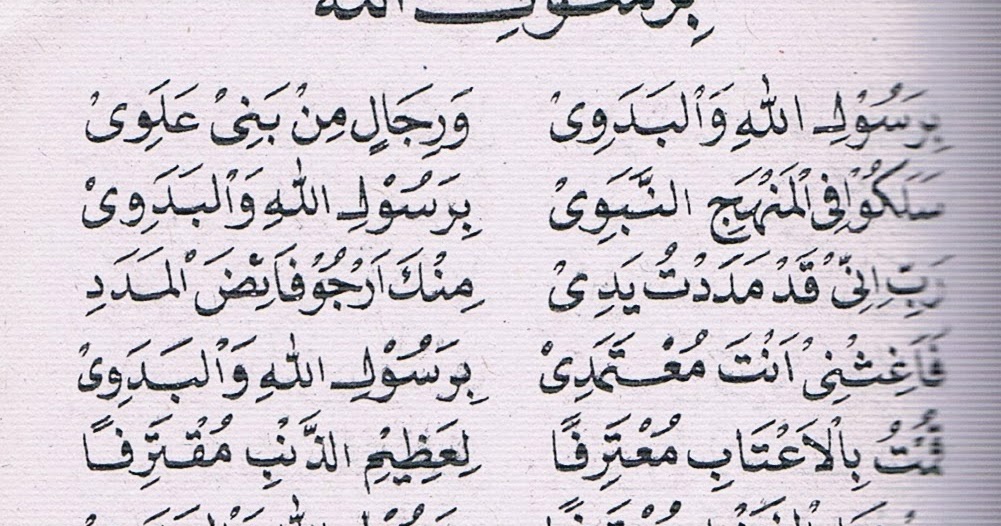 بِرَسُوْلِ اللهِ
بِرَسُوْلِ اللهِ وَالْبَدَوِىْ وَرِجَالٍ مِنْ بَنِىْ عَلَوِىْ
سَلَكُوْا فِى الْمَنْهَجِ النَّبَوِىْ بِرَسُوْلِ اللهِ وَالْبَدَوِىْ
رَبِّ اِنِّىْ قَدْ مَدَدْتُ يَدِىْ مِنْكَ اَرْجُوْ فَائِضَ الْمَدَدِ
فَاَغِثْنِىْ اَنْتَ مُعْتَمَدِىْ بِرَسُوْلِ اللهِ وَالْبَدَوِىْ
قُمْتُ بِالْاَعْتَابِ مُعْتَرِفًا لِعَظِيْمِ الذَّنْبِ مُقْتَرِفًا